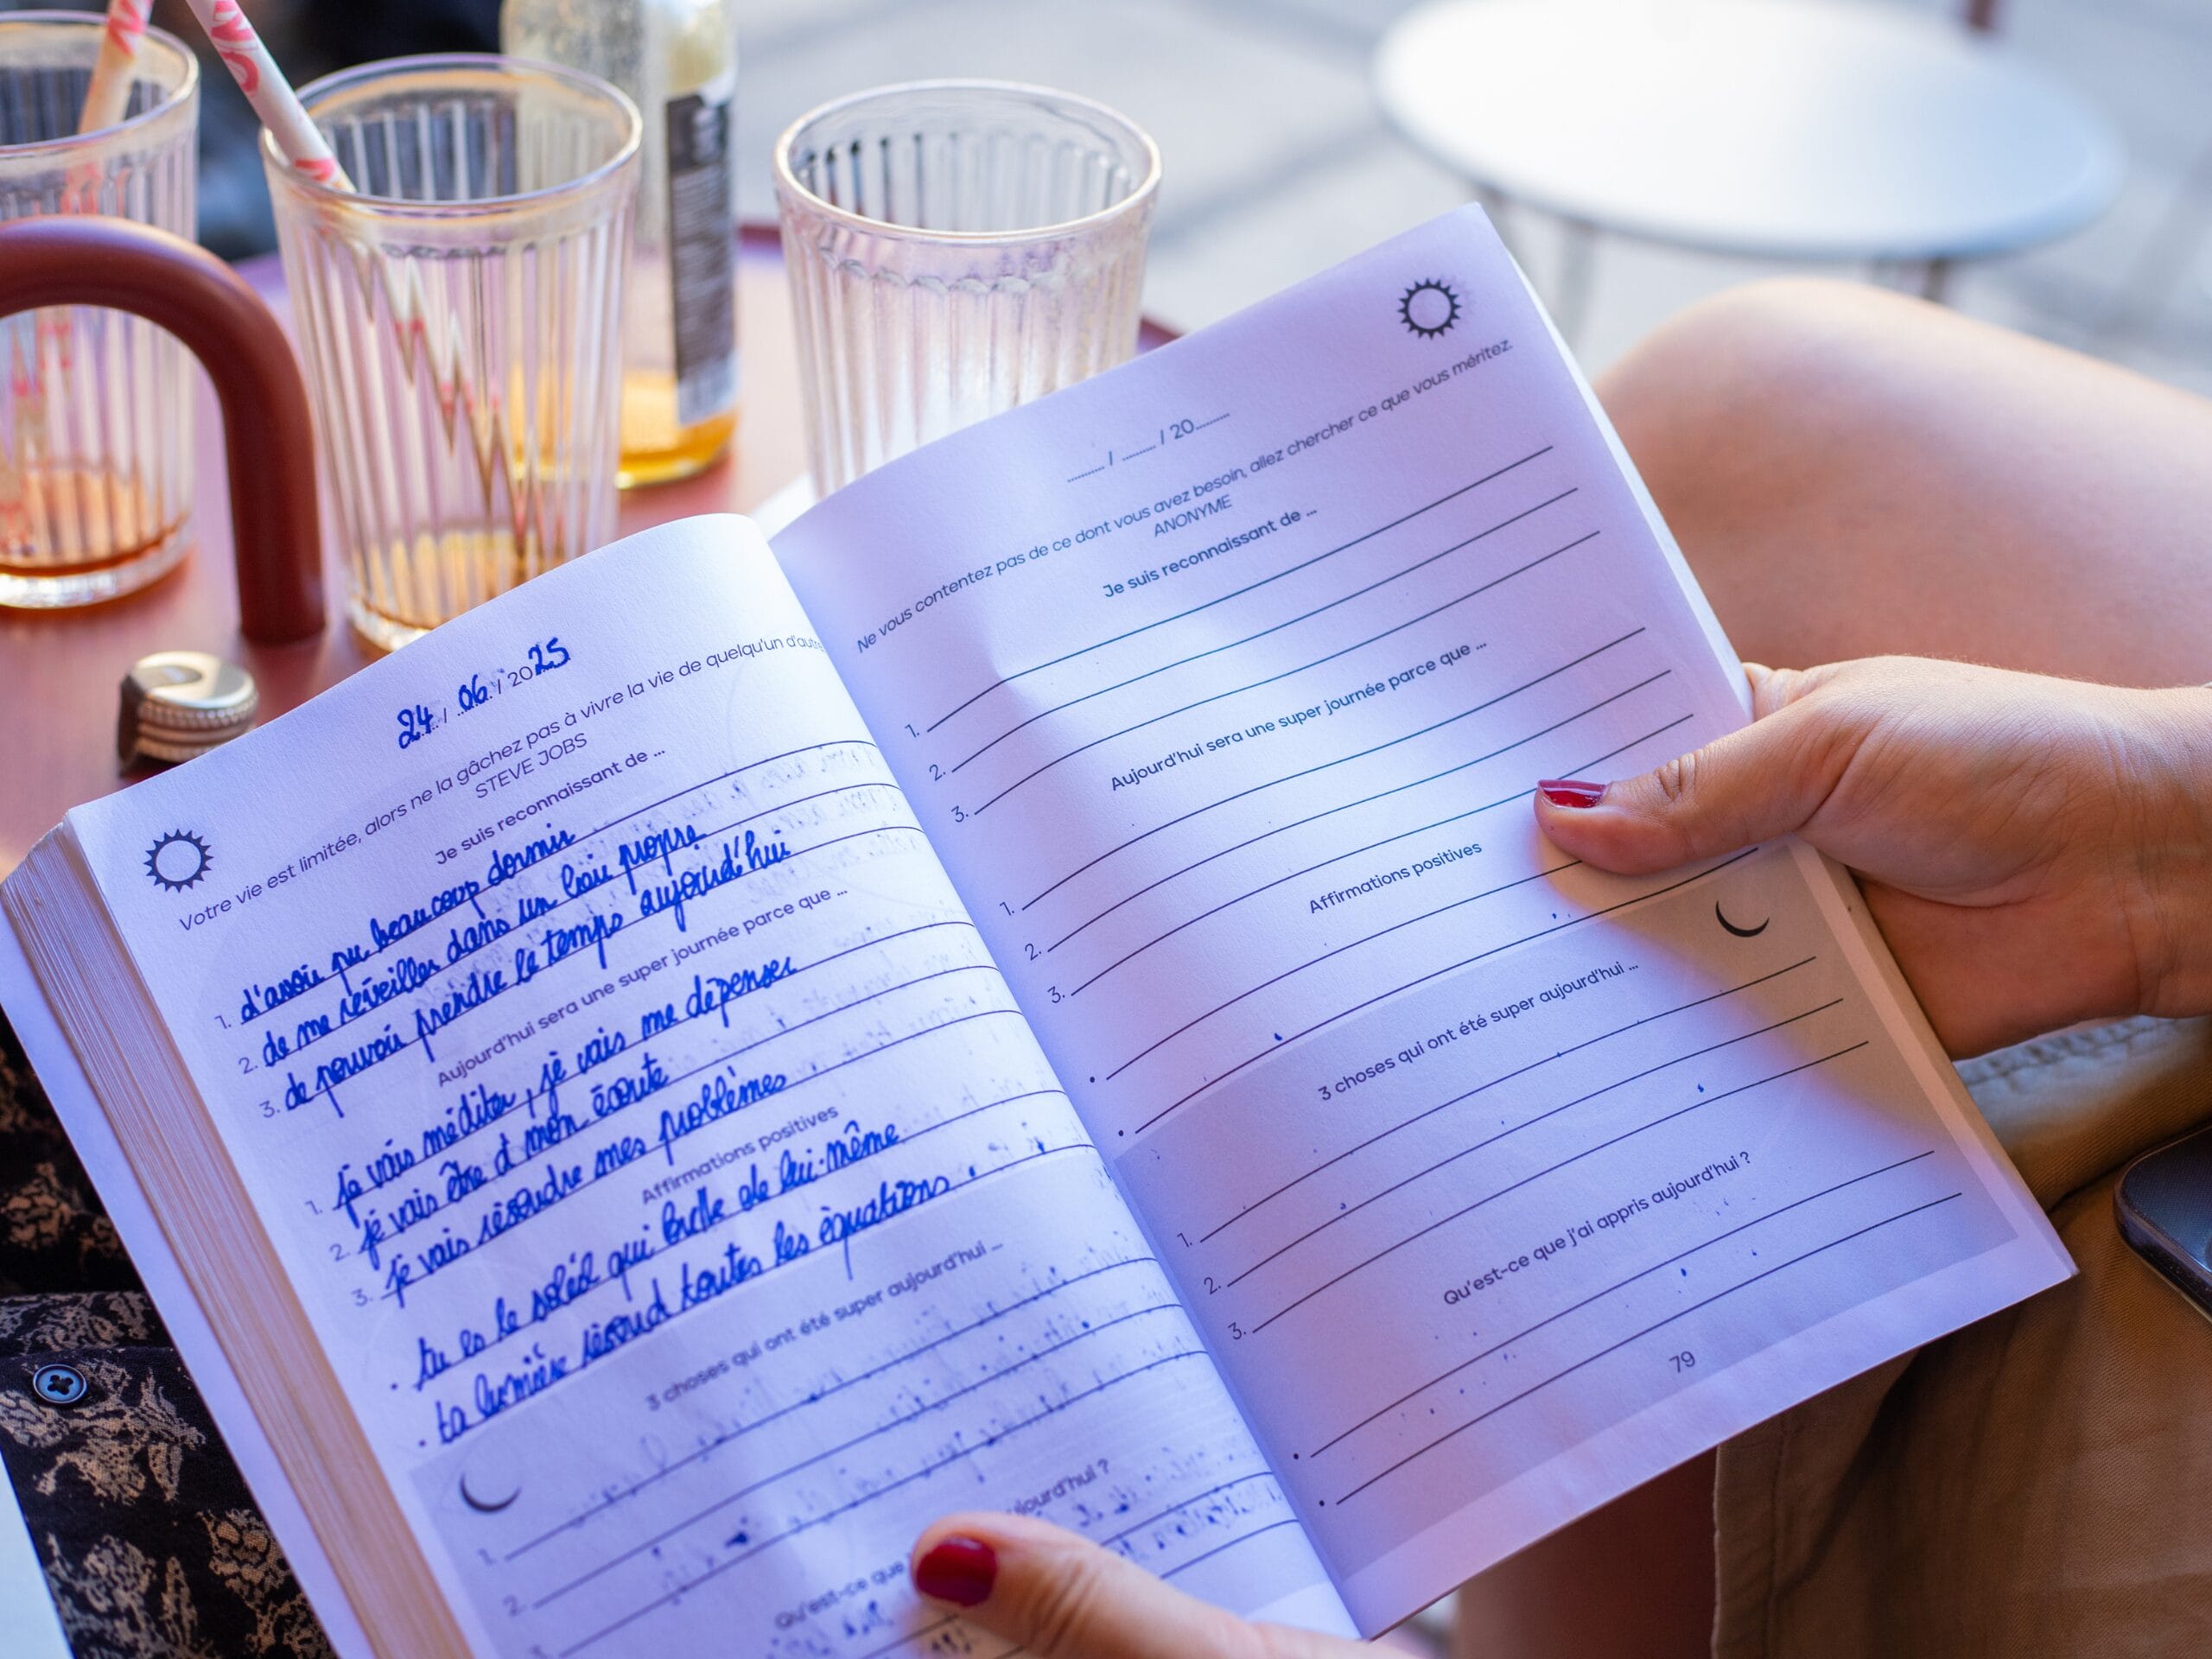 24 / 06 / 2025
Votre vie est limitée, alors ne la gâchez pas à vivre la vie de quelqu'un d'autre
STEVE JOBS
Je suis reconnaissant de ...
1. d'avoir pu beaucoup dormir
2. de me réveiller dans un lieu propre
3. de pouvoir prendre le temps aujourd'hui
Aujourd'hui sera une super journée parce que ...
1. je vais méditer, je vais me dépenser
2. je vais être à mon écoute
3. je vais résoudre mes problèmes
Affirmations positives
• tu es le soleil qui brille de lui-même
• ta lumière résoud toutes les équations.
3 choses qui ont été super aujourd'hui ...
1.
2.
3.
Qu'est-ce que aujourd'hui ?
/ / 20
Ne vous contentez pas de ce dont vous avez besoin, allez chercher ce que vous méritez.
ANONYME
Je suis reconnaissant de ...
1.
2.
3.
Aujourd'hui sera une super journée parce que ...
1.
2.
3.
Affirmations positives
•
•
3 choses qui ont été super aujourd'hui ...
1.
2.
3.
Qu'est-ce que j'ai appris aujourd'hui ?
•
•
79